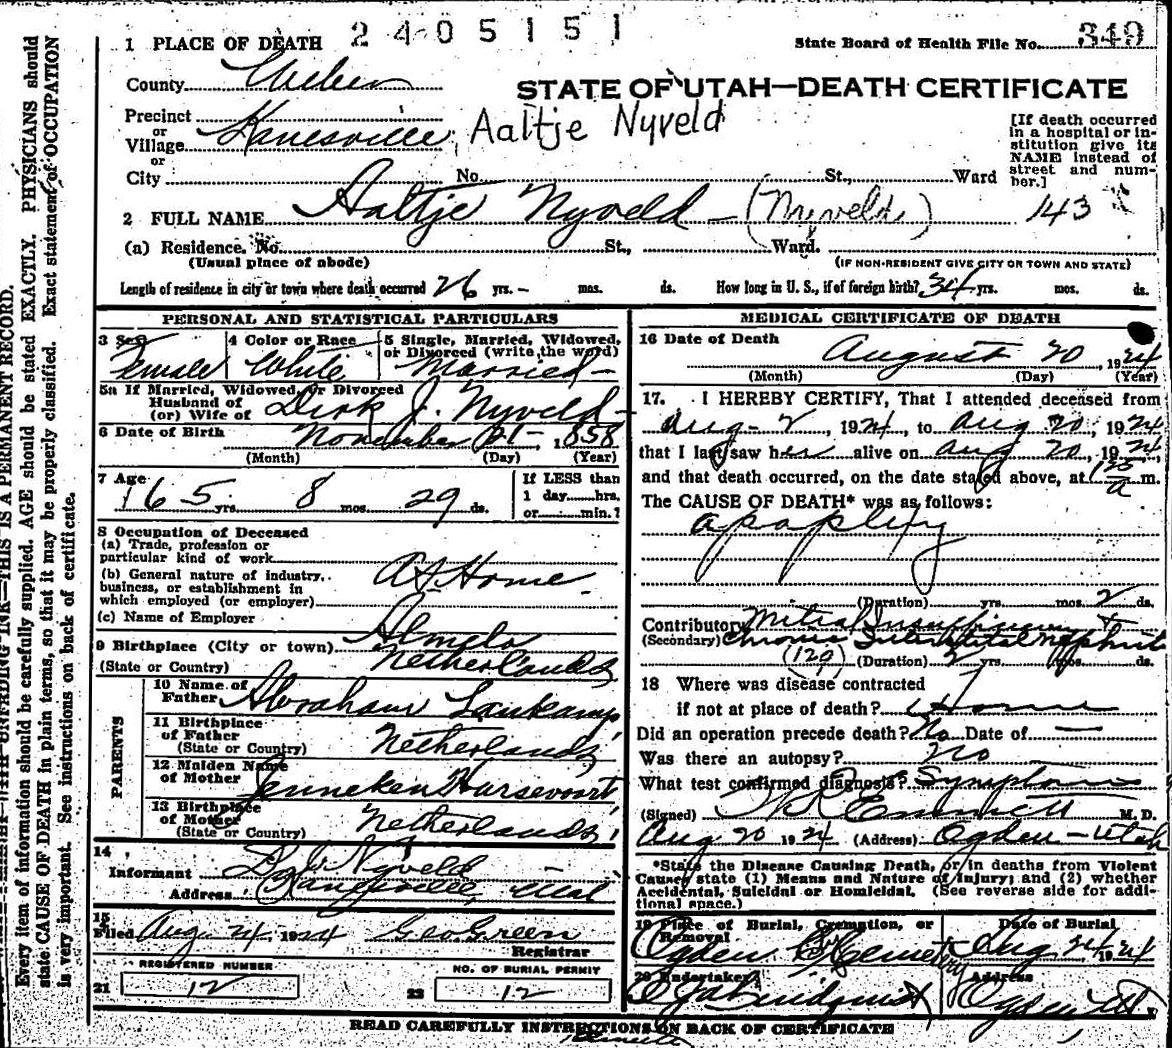 2405151
1 PLACE OF DEATH
State Board of Health File No. 349
County Weber
STATE OF UTAH—DEATH CERTIFICATE
Precinct
or
Village Kanesville, Aaltje Nyveld
or
City No. St., Ward
[If death occurred
in a hospital or in-
stitution give its
NAME instead of
street and num-
ber.]
2 FULL NAME Aaltje Nyveld (Nyveld) 143
(a) Residence. No. St., Ward.
(Usual place of abode) (IF NON-RESIDENT GIVE CITY OR TOWN AND STATE)
Length of residence in city or town where death occurred 26 yrs. - mos. ds. How long in U. S., if of foreign birth? 34 yrs. mos. ds.
PERSONAL AND STATISTICAL PARTICULARS
3 Sex Female
4 Color or Race White
5 Single, Married, Widowed,
or Divorced (write the word)
Married
5a If Married, Widowed, or Divorced
Husband of
(or) Wife of Dirk J. Nyveld
6 Date of Birth November 21 - 1858
(Month) (Day) (Year)
7 Age 65 yrs. 8 mos. 29 ds.
If LESS than
1 day......hrs.
or......min.?
8 Occupation of Deceased
(a) Trade, profession or
particular kind of work
At Home
(b) General nature of industry,
business, or establishment in
which employed (or employer)
(c) Name of Employer
9 Birthplace (City or town) Almelo
(State or Country) Netherlands
PARENTS
10 Name of
Father Abraham Lankamp
11 Birthplace
of Father
(State or Country) Netherlands
12 Maiden Name
of Mother Jenneken Harsevoort
13 Birthplace
of Mother
(State or Country) Netherlands
14
Informant D. J. Nyveld
Address Kanesville, Utah
15
Filed Aug 24, 1924 Geo Green
Registrar
REGISTERED NUMBER
21 12
NO. OF BURIAL PERMIT
22 12
MEDICAL CERTIFICATE OF DEATH
16 Date of Death
August 20, 1924
(Month) (Day) (Year)
17. I HEREBY CERTIFY, That I attended deceased from
Aug - 2, 1924, to Aug 20, 1924
that I last saw her alive on Aug 20, 1924,
and that death occurred, on the date stated above, at a m.
The CAUSE OF DEATH* was as follows:
apoplexy
(Duration) yrs. mos. 2 ds.
Contributory Mitral Insufficiency +
(Secondary) Chronic Interstitial Nephritis
(129) (Duration) 2 yrs. mos. ds.
18 Where was disease contracted
if not at place of death? Home
Did an operation precede death? No Date of —
Was there an autopsy? No
What test confirmed diagnosis? Symptoms
(Signed) Emmett M. D.
Aug 20 1924 (Address) Ogden - Utah
*State the Disease Causing Death, or in deaths from Violent
Causes state (1) Means and Nature of Injury; and (2) whether
Accidental, Suicidal or Homicidal. (See reverse side for addi-
tional space.)
19 Place of Burial, Cremation, or
Removal
Ogden City Cemetery
Date of Burial
Aug 24 1924
20 Undertaker
Lindquist
Address
Ogden, Ut.
READ CAREFULLY INSTRUCTIONS ON BACK OF CERTIFICATE
THIS IS A PERMANENT RECORD.
Every item of information should be carefully supplied. AGE should be stated EXACTLY. PHYSICIANS should
state CAUSE OF DEATH in plain terms, so that it may be properly classified. Exact statement of OCCUPATION
is very important. See instructions on back of certificate.